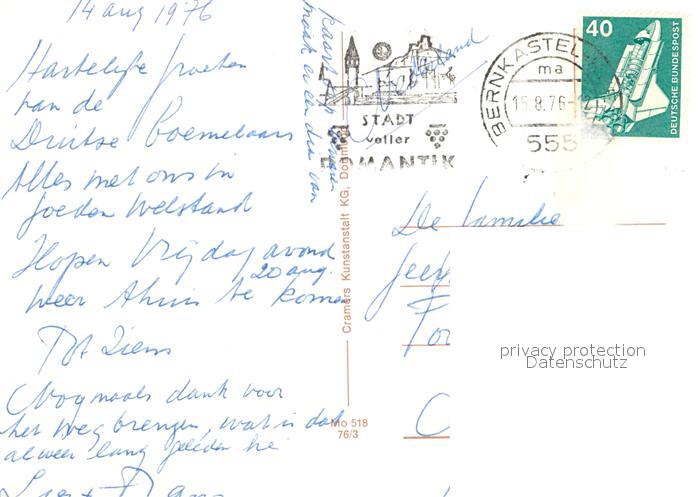 14 aug 1976
Hartelijke groeten
van de
Duitse Boemelaars
Alles met ons in
goeden welstand
Hopen Vrijdag avond
20 aug.
weer thuis te komen
Tot Ziens
Nogmaals dank voor
het weg brengen, wat is dat
alweer lang geleden hè
kaart
maak er een drie van
Nederland
STADT
voller
ROMANTIK
BERNKASTEL
ma
15.8.76
555
40
DEUTSCHE BUNDESPOST
Cramers Kunstanstalt KG, Dortmund
Mo 518
76/3
De Familie
privacy protection
Datenschutz